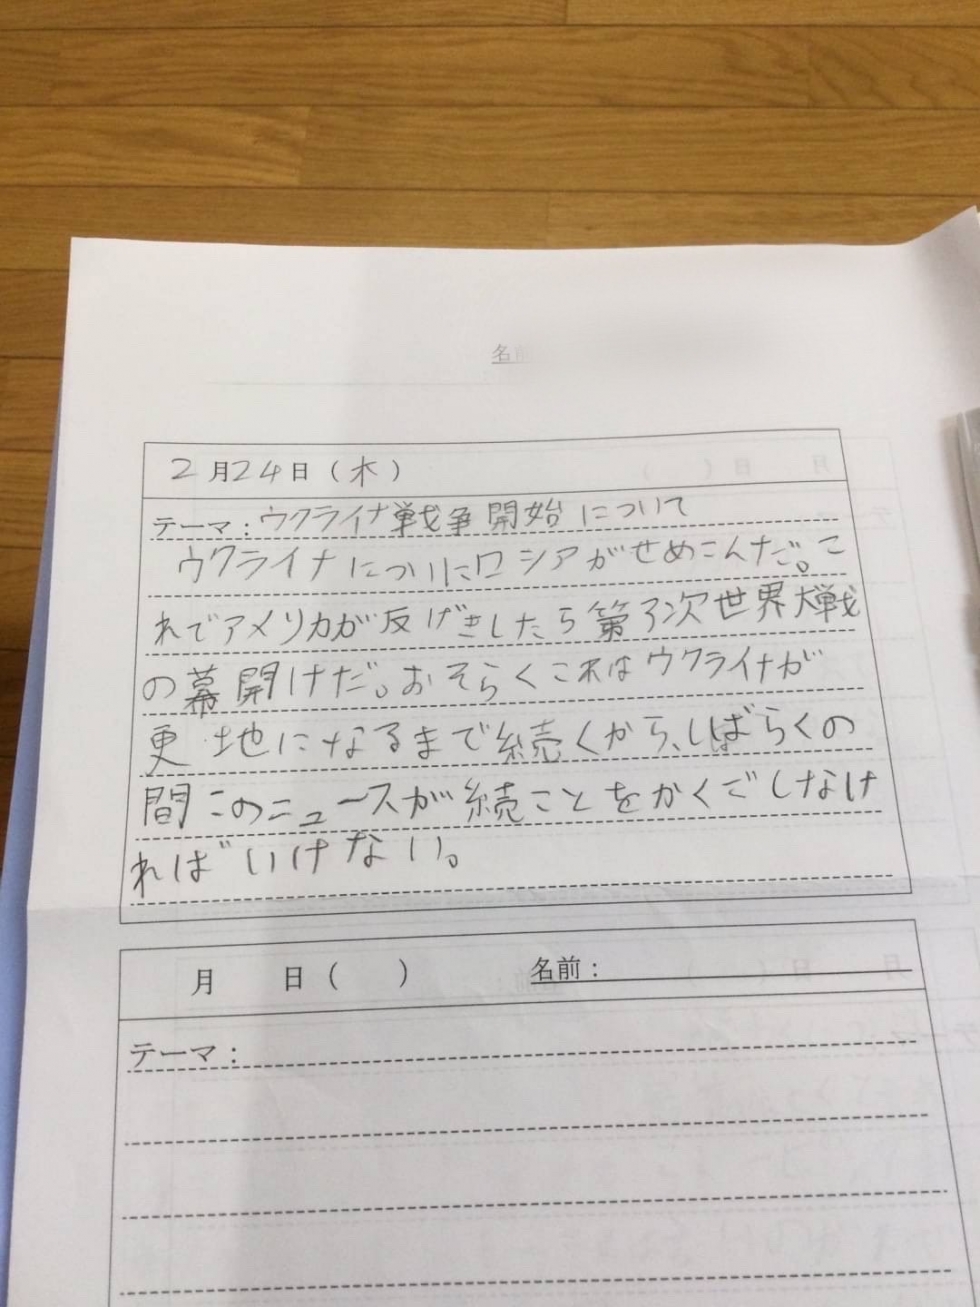 名前
2月24日(木)
テーマ:ウクライナ戦争開始について
ウクライナについにロシアがせめこんだ。こ
れでアメリカが反げきしたら第3次世界大戦
の幕開けだ。おそらくこれはウクライナが
更地になるまで続くから、しばらくの
間このニュースが続ことをかくごしなけ
ればいけない。
月 日( ) 名前:
テーマ: